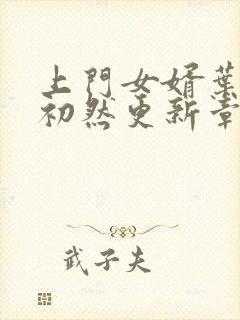 上門女婿葉
初然更新章
武子夫